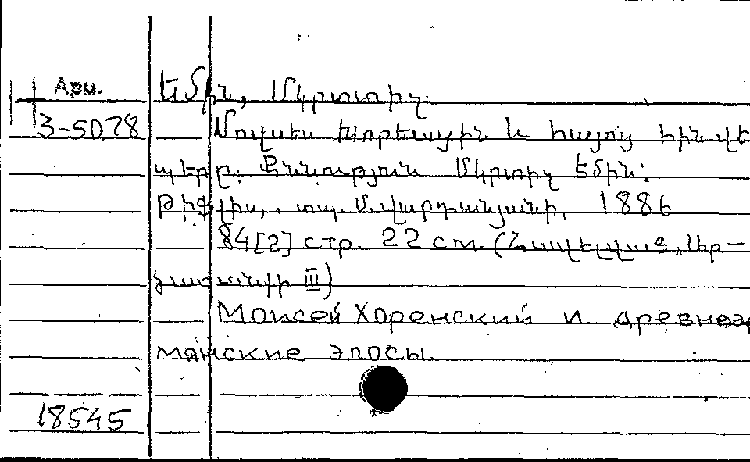 Арм.
3-5078
Եմին, Մկրտտիչ.
Մովսես Խորենացին և հայոց հին վե
պերը. Քննություն Մկրտիչ Եմին:
Թիֆլիս, տպ. Մ. Վարդանյանի, 1886
84[2] стр. 22 см. (Հավելված
III)
Моисей Хоренский и древнеар
манские эпосы.
18545